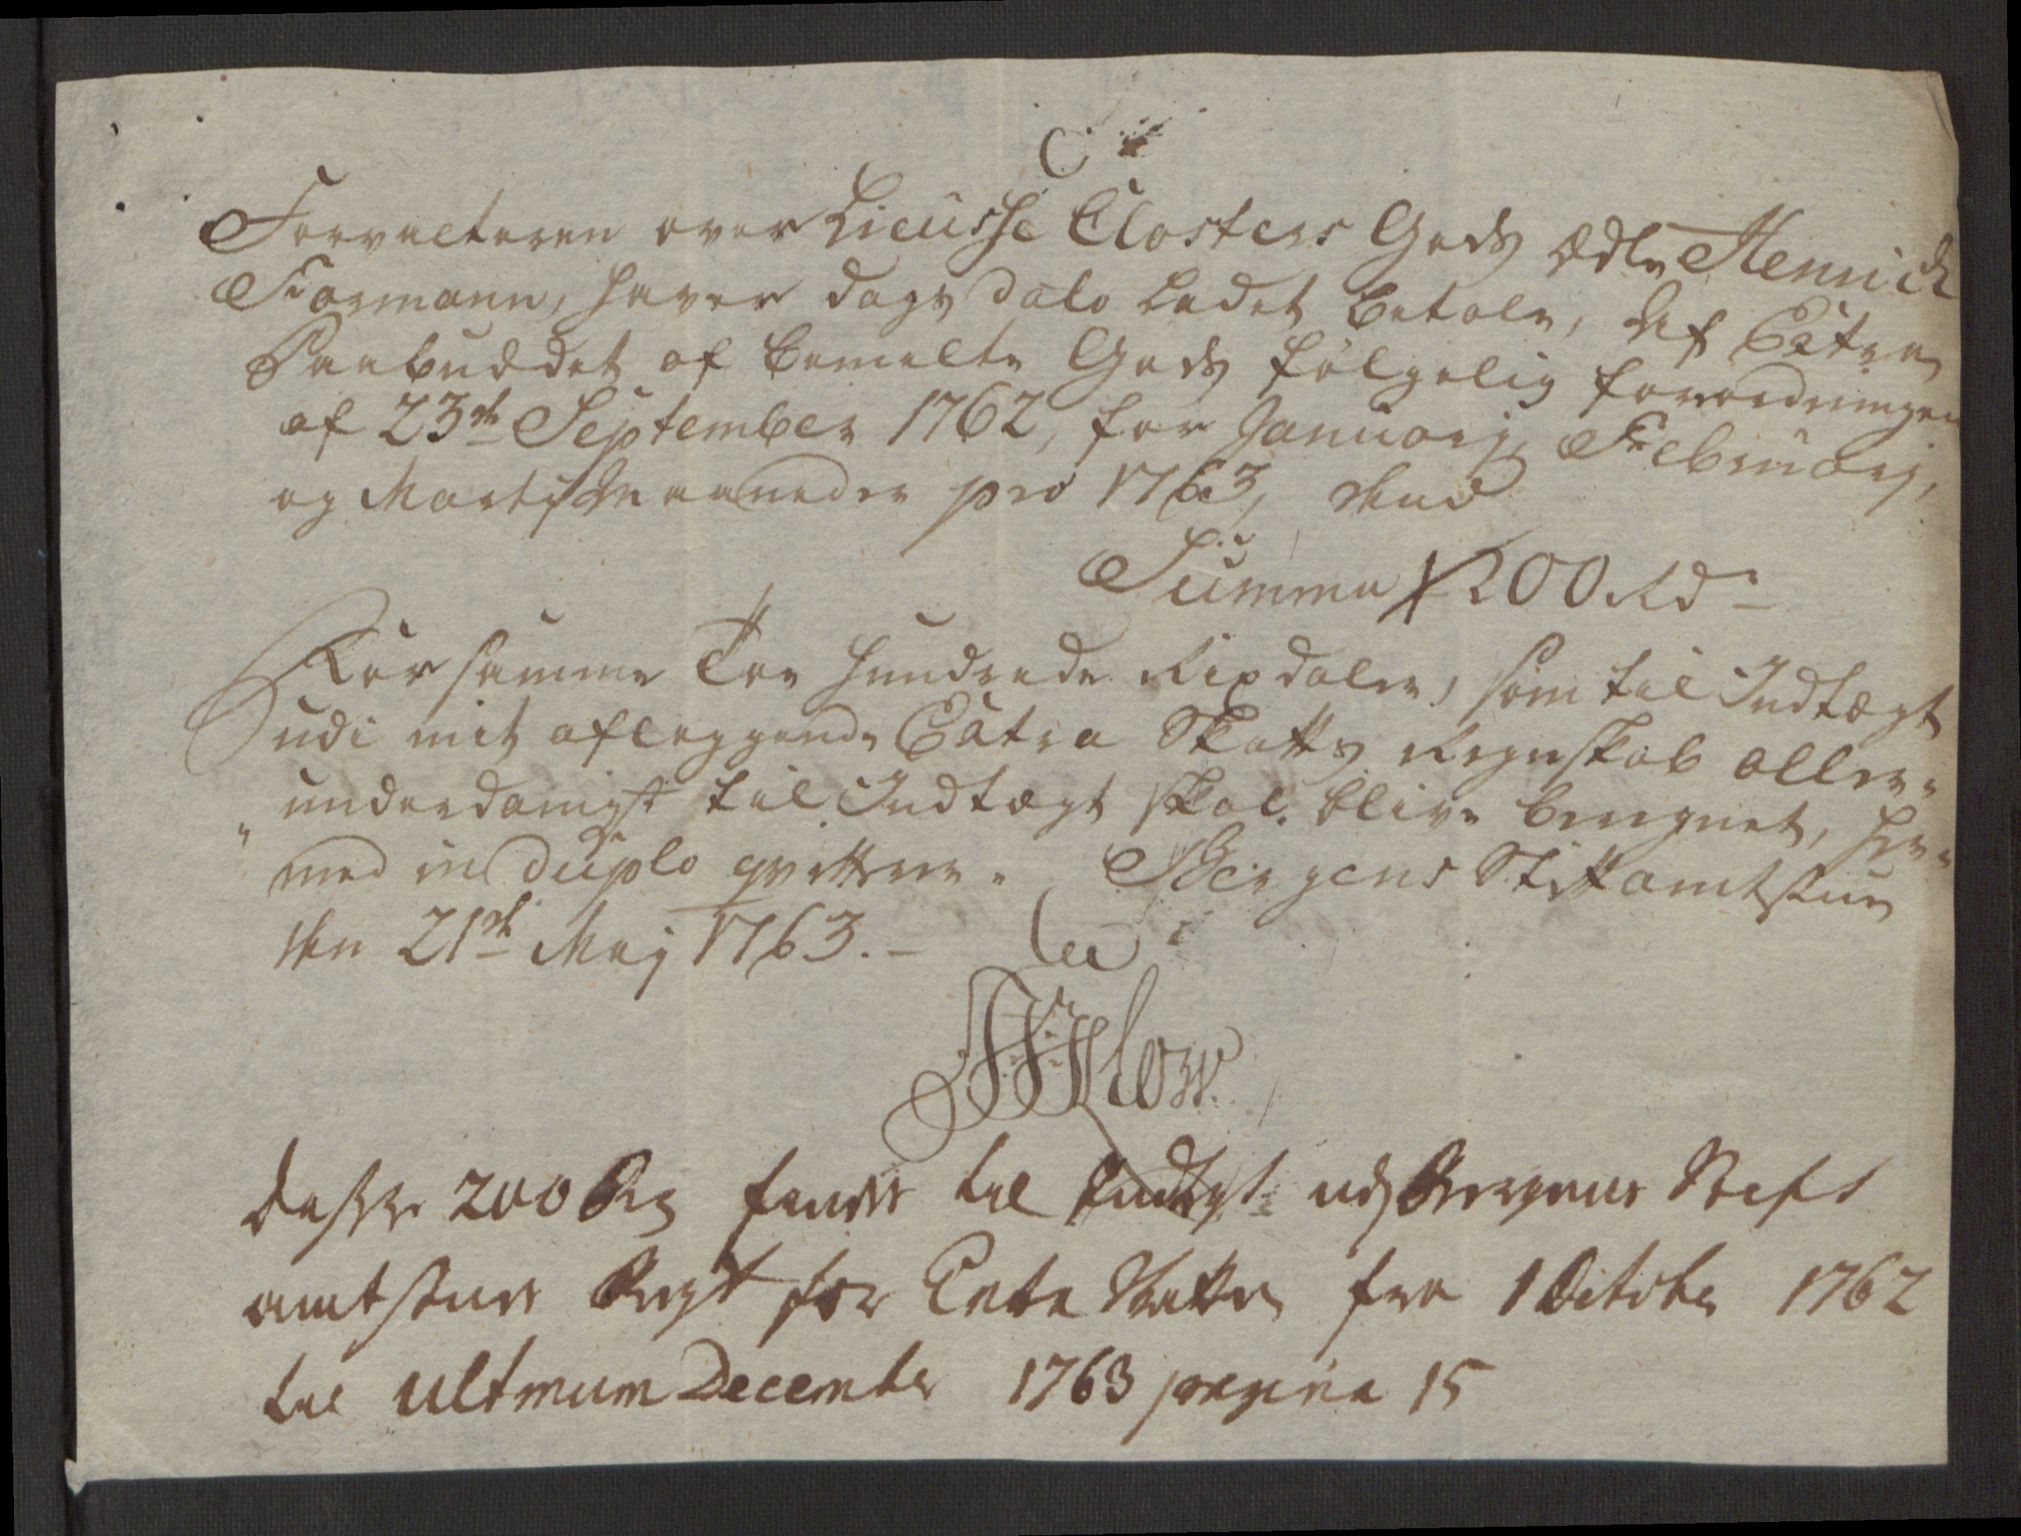 C
Forvalteren over Lieusse Closters Gods Ædle Henrich
Formann, haver dags dato ladet betale, det Extra
Paabuddet af bemelte Gods følgelig forordningen
af 23de September 1762, for Januarij, Februarij,
og Martij Maaneder pro 1763, med
Summa 200 Rd
For samme Toe hundrede Rixdaler, som til Indtægt
udi mit aflæggende Extra Skatts Regnskab aller-
underdanigst til Indtægt skal blive beregnet, her-
med in duplo qvitterer. Bergens Stiftamtstue
den 21de Maj 1763.
Disse 200 Rd findes til Indtægt udj Bergens Stift
amtstues Regsk for Extra Skatten fra 1 Octobr 1762
til ultimum December 1763 pagina 15